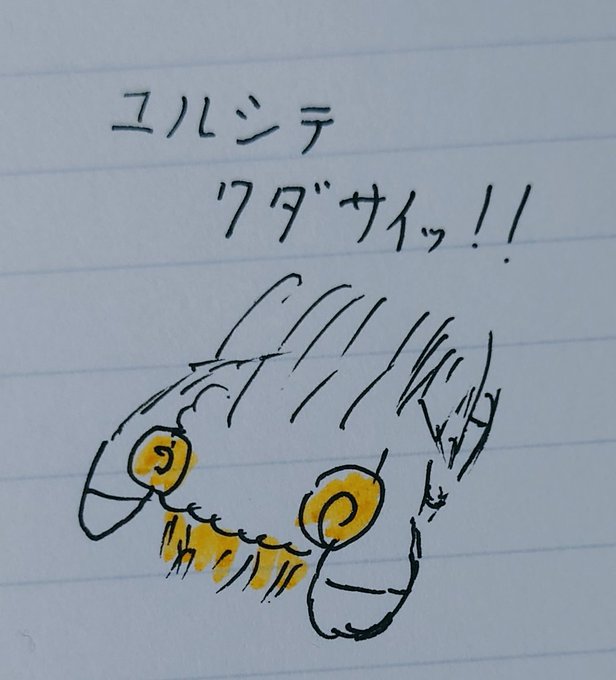 ユルシテ
クダサイッ!!